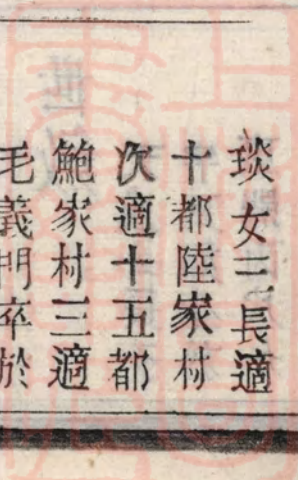 琰女三長適
十都陸家村
次適十五都
鮑家村三適
毛義門卒於